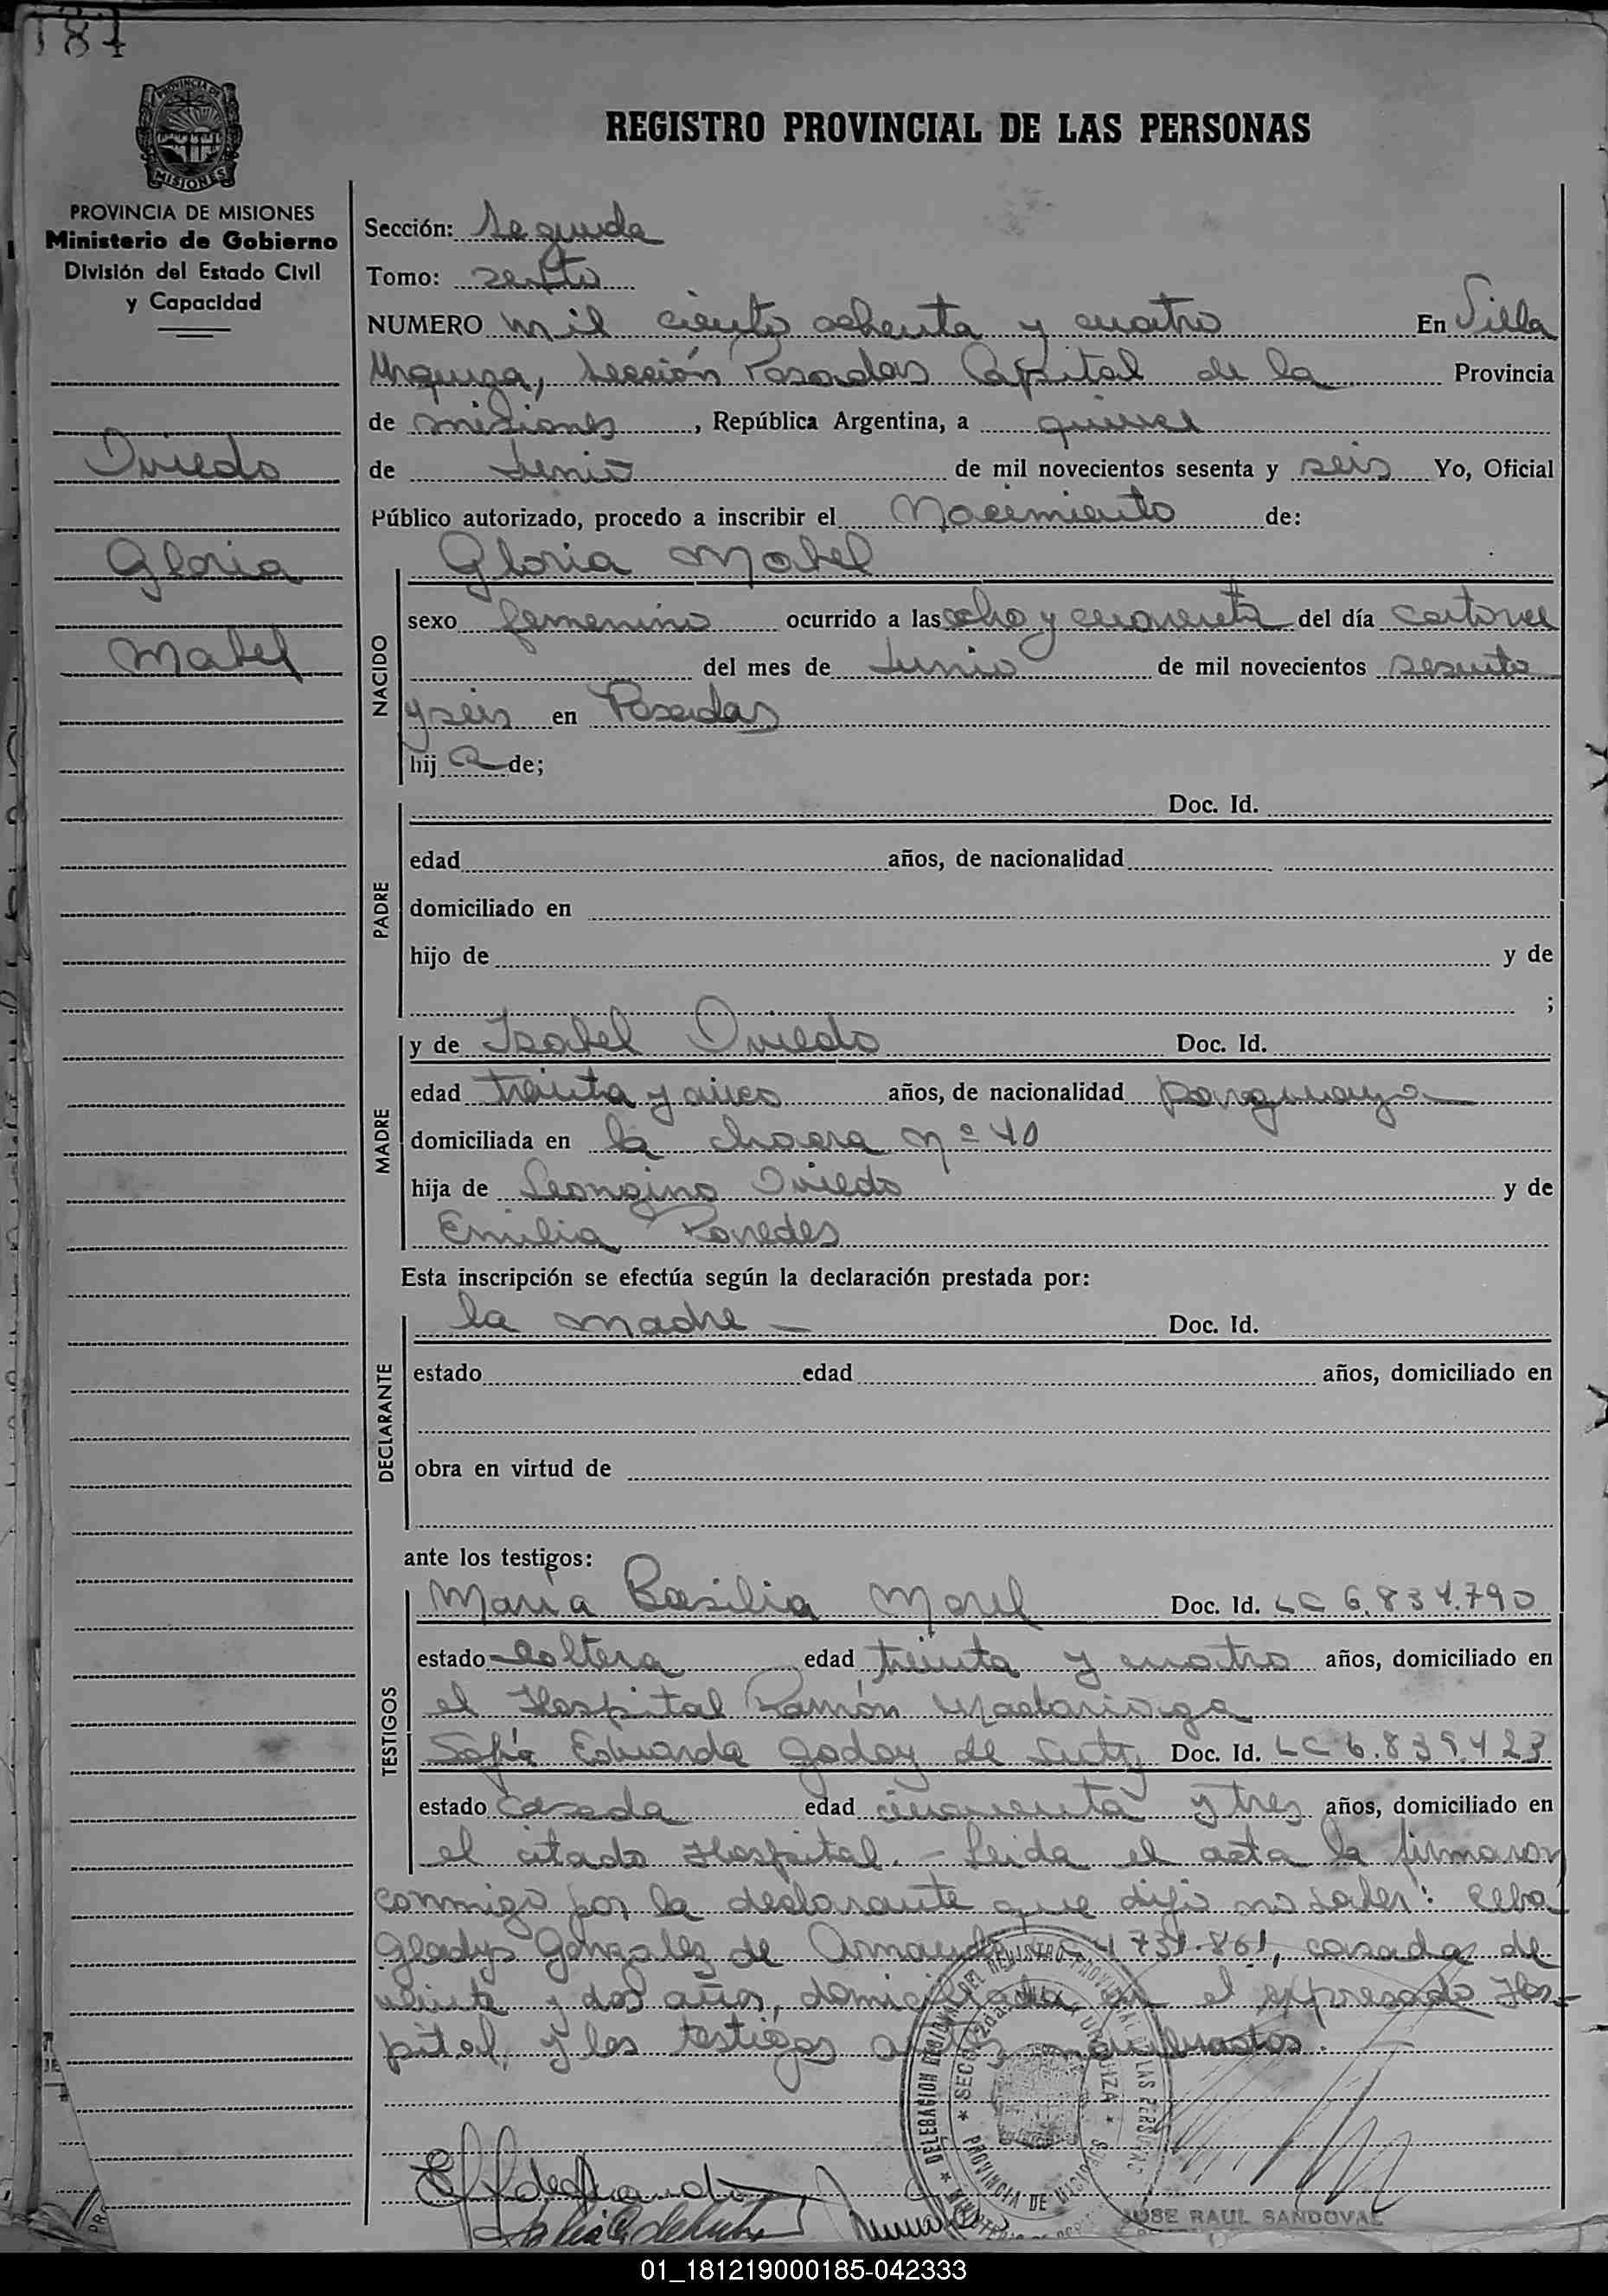 187
PROVINCIA DE MISIONES
REGISTRO PROVINCIAL DE LAS PERSONAS
PROVINCIA DE MISIONES
Ministerio de Gobierno
División del Estado Civil
y Capacidad
Oviedo
Gloria
Mabel
Sección: Segunda
Tomo: sexto
NUMERO mil ciento ochenta y cuatro En Villa
Urquiza, Sección Posadas Capital de la Provincia
de misiones, República Argentina, a quince
de Junio de mil novecientos sesenta y seis Yo, Oficial
Público autorizado, procedo a inscribir el Nacimiento de:
Gloria Mabel
NACIDO
sexo femenino ocurrido a las ocho y cuarenta del día catorce
del mes de Junio de mil novecientos sesenta
y seis en Posadas
hija de;
PADRE
Doc. Id.
edad años, de nacionalidad
domiciliado en
hijo de y de
;
MADRE
y de Isabel Oviedo Doc. Id.
edad treinta y cinco años, de nacionalidad paraguaya
domiciliada en la chacra nº 40
hija de Leongino Oviedo y de
Emilia Paredes
Esta inscripción se efectúa según la declaración prestada por:
DECLARANTE
la madre – Doc. Id.
estado edad años, domiciliado en
obra en virtud de
ante los testigos:
TESTIGOS
María Basilia Morel Doc. Id. LC 6.834.790
estado soltera edad treinta y cuatro años, domiciliado en
el Hospital Ramón Madariaga
Sofía Eduarda Godoy de Doc. Id. LC 6.839.423
estado casada edad cincuenta y tres años, domiciliado en
el citado Hospital. – Leida el acta la firmaron
conmigo por la declarante que dijo no saber: Elba
Gladys González de 4.731.861, casada de
veinte y dos años, domiciliada en el expresado Hos-
pital, y los testigos mencionados.
DELEGACION REGIONAL DEL REGISTRO PROVINCIAL DE LAS PERSONAS
SECC. 2da. VILLA URQUIZA
PROVINCIA DE MISIONES
JOSE RAUL SANDOVAL
01_181219000185-042333